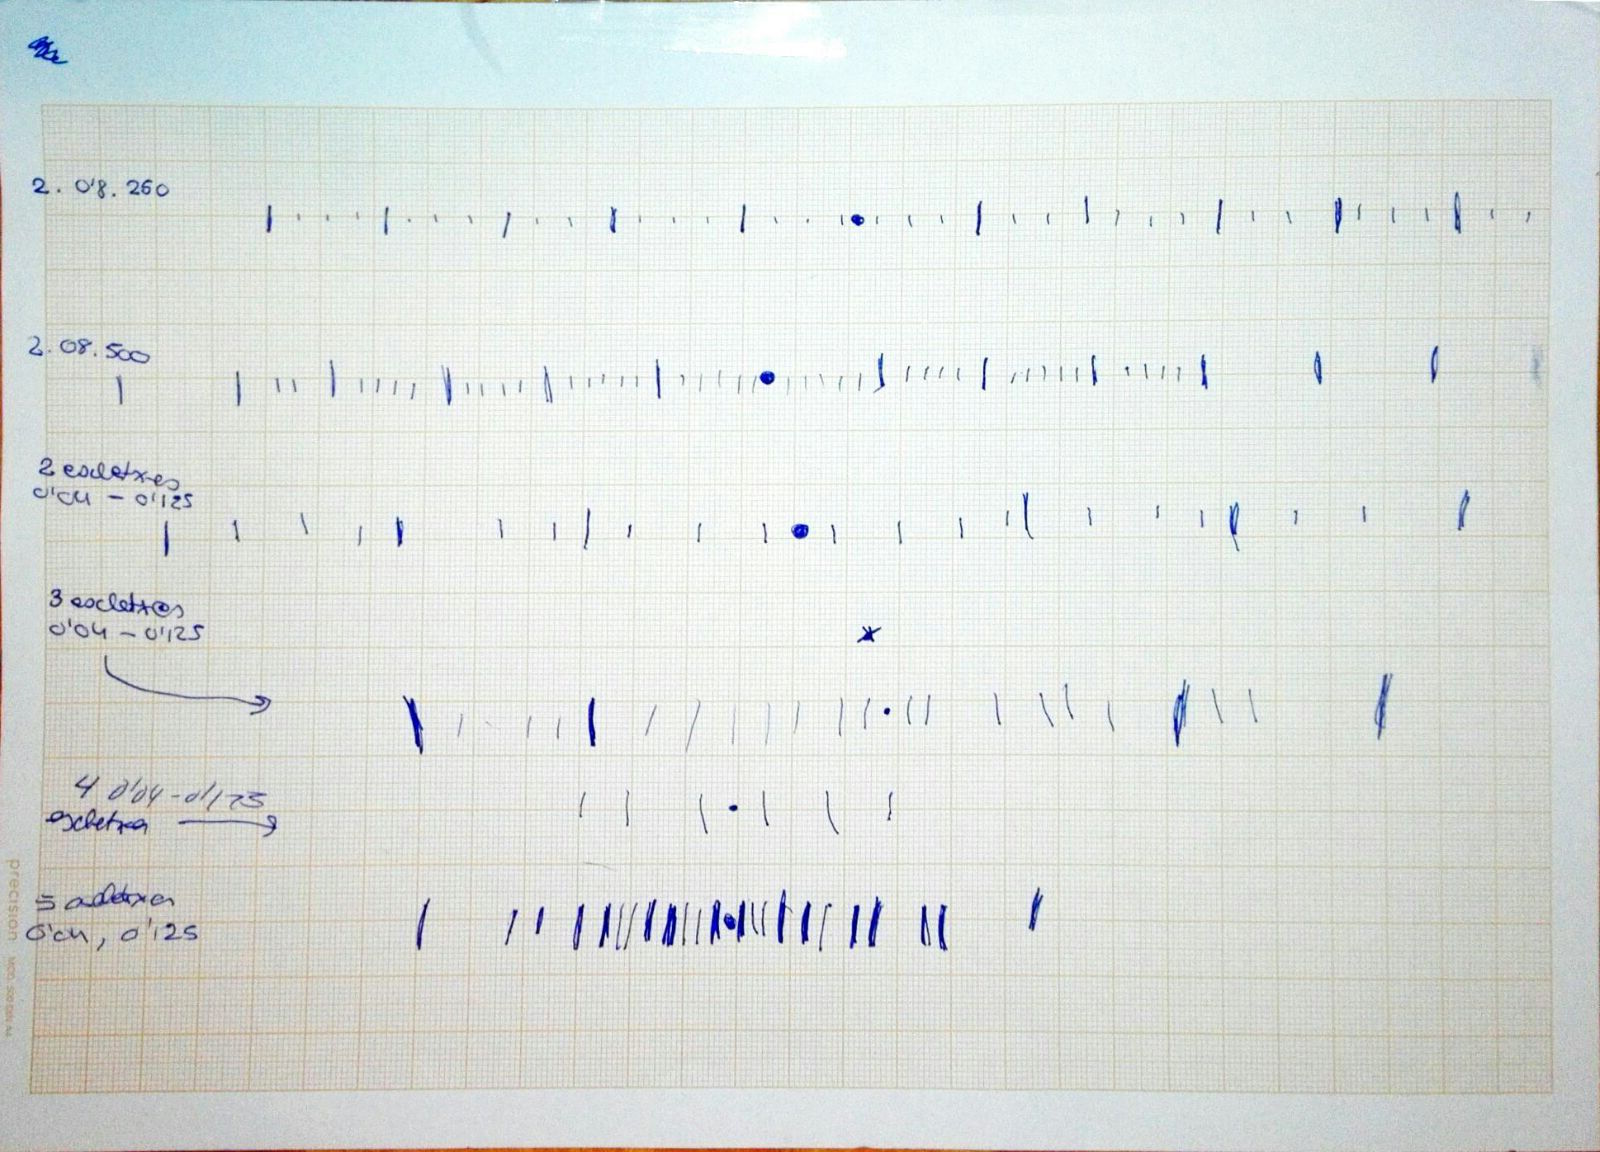 2. 0'8. 260
2. 08. 500
2 escletxes
0'04 - 0'125
3 escletxes
0'04 - 0'125
4 0'04 - 0'125
escletxa
5 escletxes
0'04, 0'125
precision